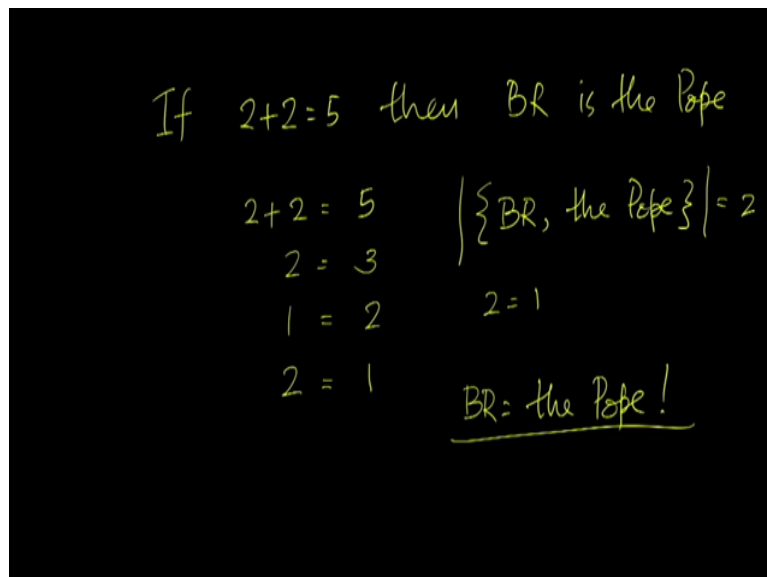 If 2+2=5 then BR is the Pope
2+2 = 5
2 = 3
1 = 2
2 = 1
|{BR, the Pope}| = 2
2 = 1
BR = the Pope!